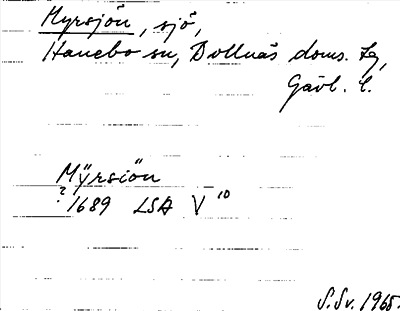 Myrsjön, sjö,
Hanebo sn, Bollnäs doms. tg,
Gävl. l.
Mÿrsiön
? 1689 LSA V 10
S.Sv. 1965.